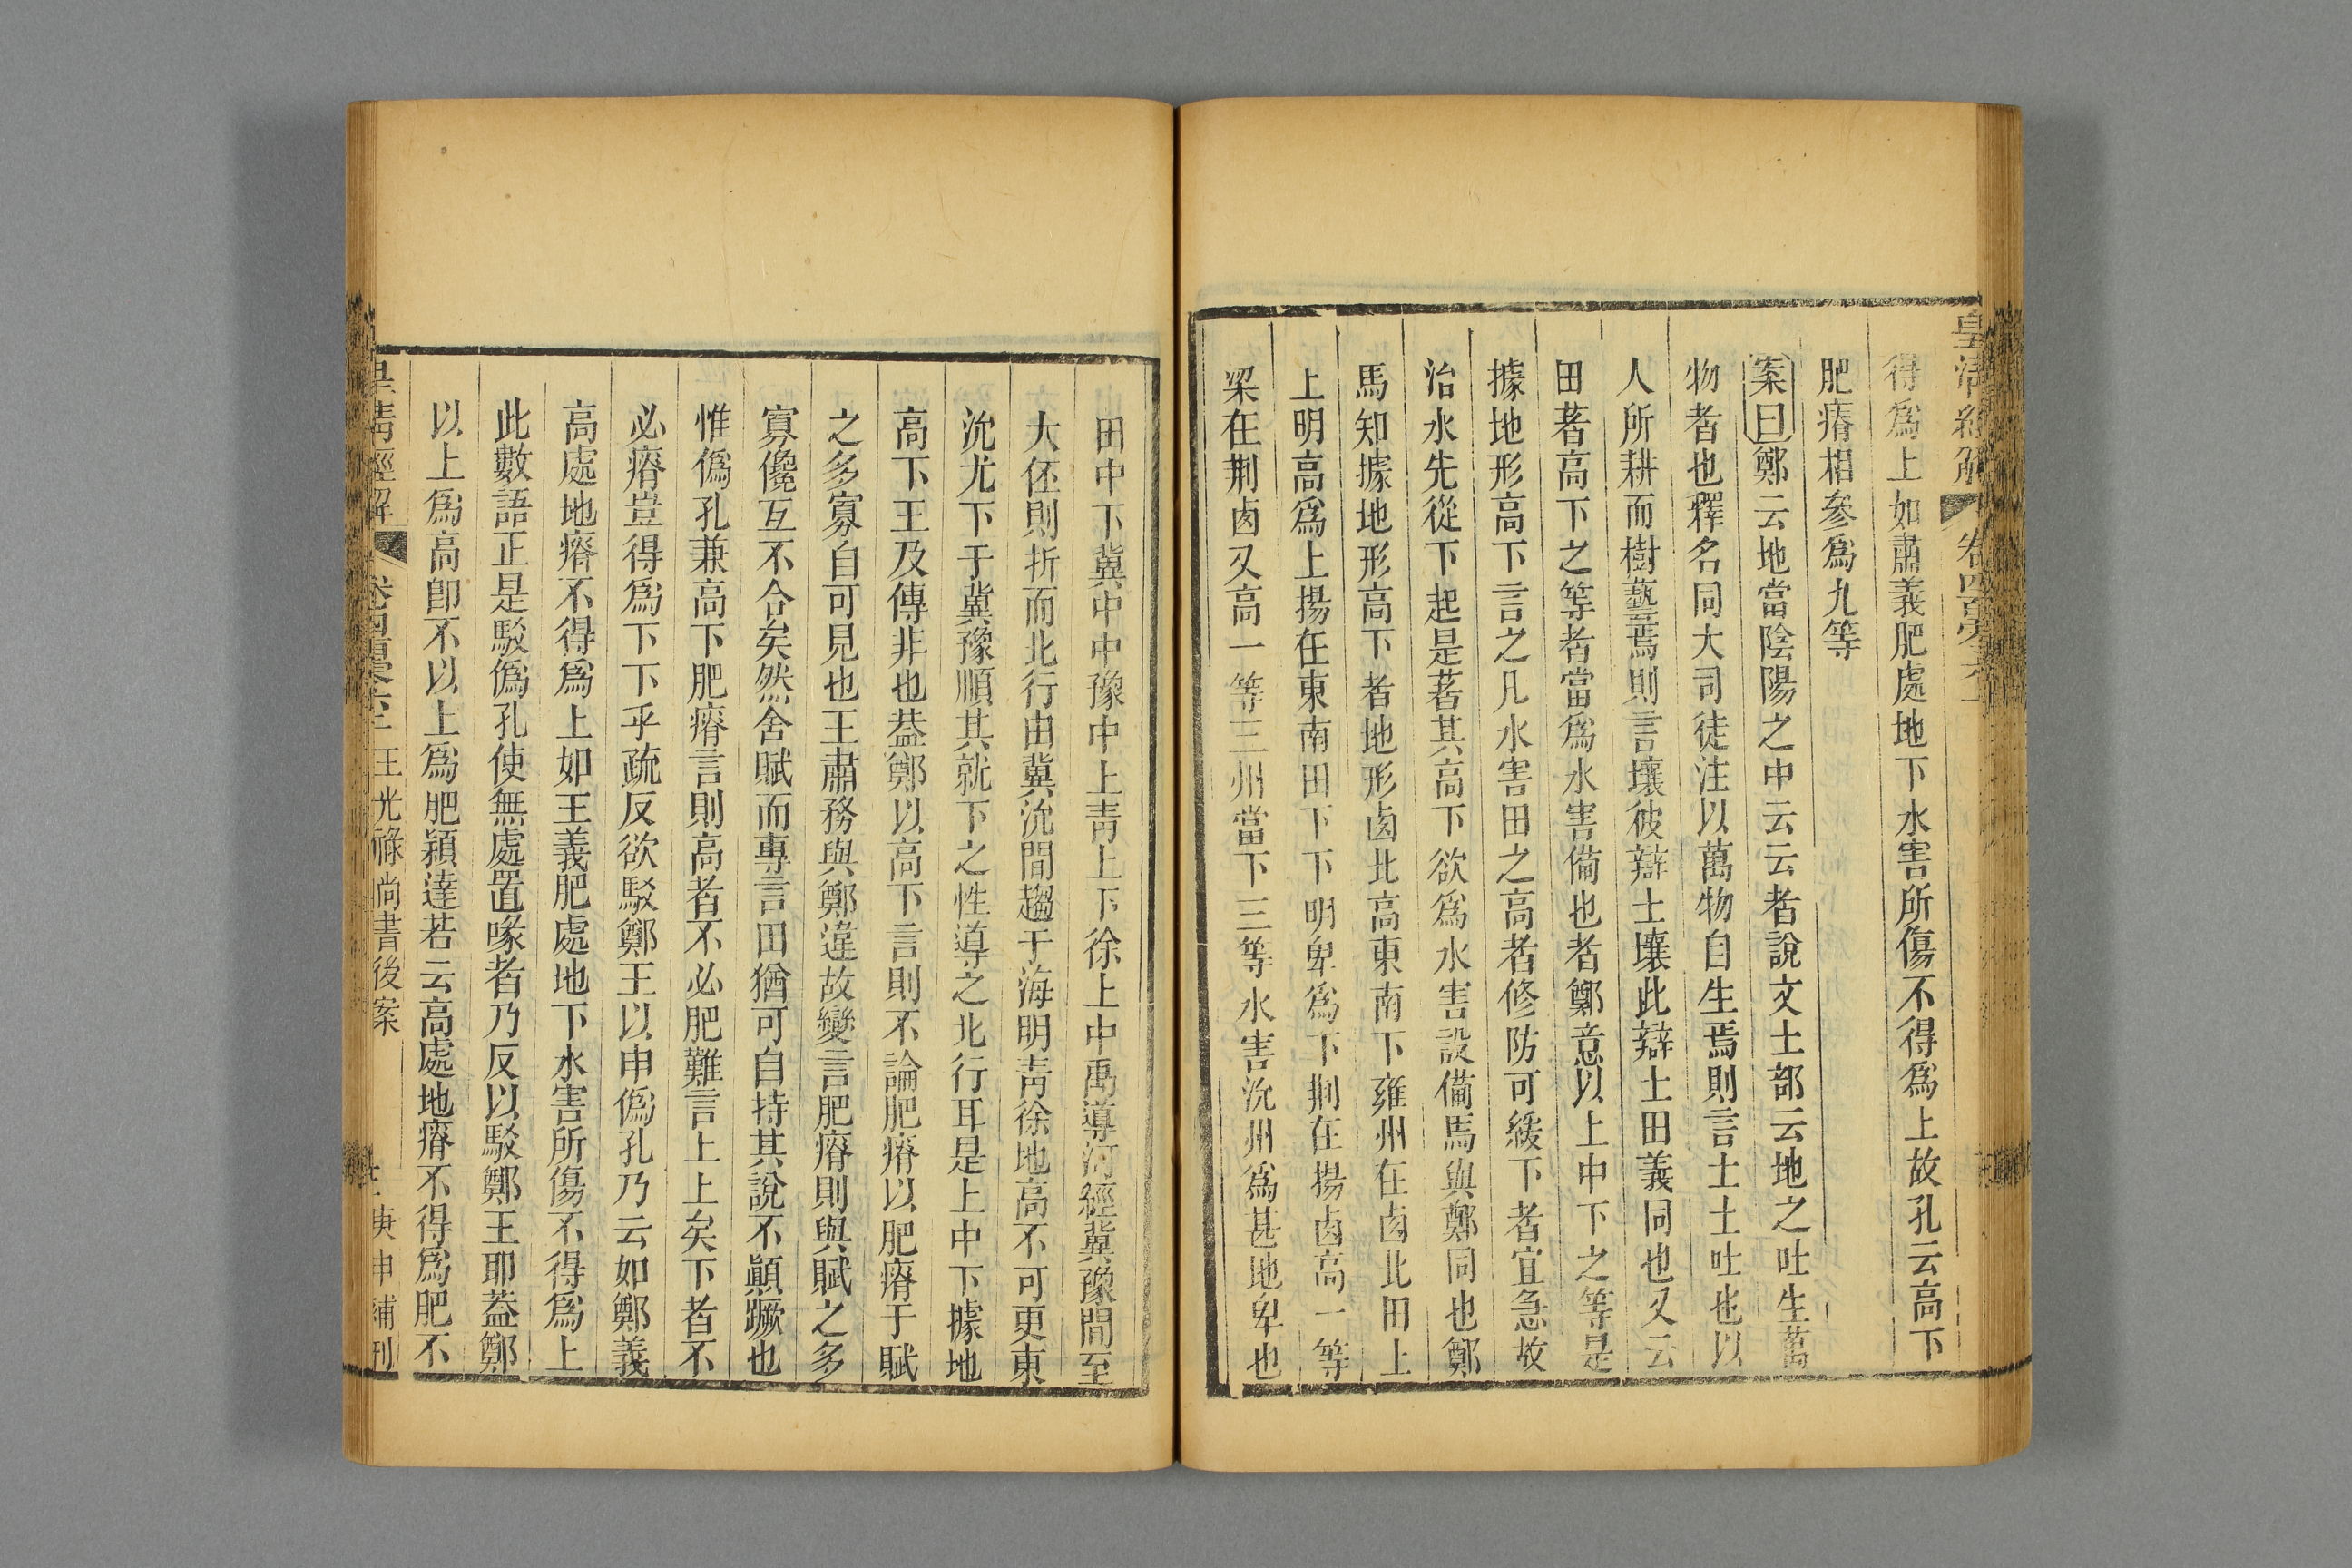 皇清經解
卷四百六
得爲上如肅義肥處地下水害所傷不得爲上故孔云高下
肥瘠相參爲九等
案曰鄭云地當陰陽之中云云者說文土部云地之吐生萬
物者也釋名同大司徒注以萬物自生焉則言土土吐也以
人所耕而樹藝焉則言壤彼辯土壤此辯土田義同也又云
田著高下之等者當爲水害備也者鄭意以上中下之等是
據地形高下言之凡水害田之高者修防可緩下者宜急故
治水先從下起是著其高下欲爲水害設備馬與鄭同也鄭
馬知據地形高下者地形鹵北高東南下雍州在鹵北田上
上明高爲上揚在東南田下下明卑爲下荆在揚鹵高一等
梁在荆鹵又高一等三州當下三等水害沇州爲甚地卑也
田中下冀中中豫中上靑上下徐上中禹導河經冀豫間至
大伾則折而北行由冀沇間趨于海明靑徐地高不可更東
沇尤下于冀豫順其就下之性導之北行耳是上中下據地
高下王及傳非也葢鄭以高下言則不論肥瘠以肥瘠于賦
之多寡自可見也王肅務與鄭違故變言肥瘠則與賦之多
寡儳互不合矣然舍賦而專言田猶可自持其說不顚蹶也
惟僞孔兼高下肥瘠言則高者不必肥難言上上矣下者不
必瘠豈得爲下下乎疏反欲駁鄭王以申僞孔乃云如鄭義
高處地瘠不得爲上如王義肥處地下水害所傷不得爲上
此數語正是駁僞孔使無處置喙者乃反以駁鄭王耶葢鄭
以上爲高卽不以上爲肥穎達若云高處地瘠不得爲肥不
皇靑經解
卷四百六 王光祿尙書後案
庚申補刊